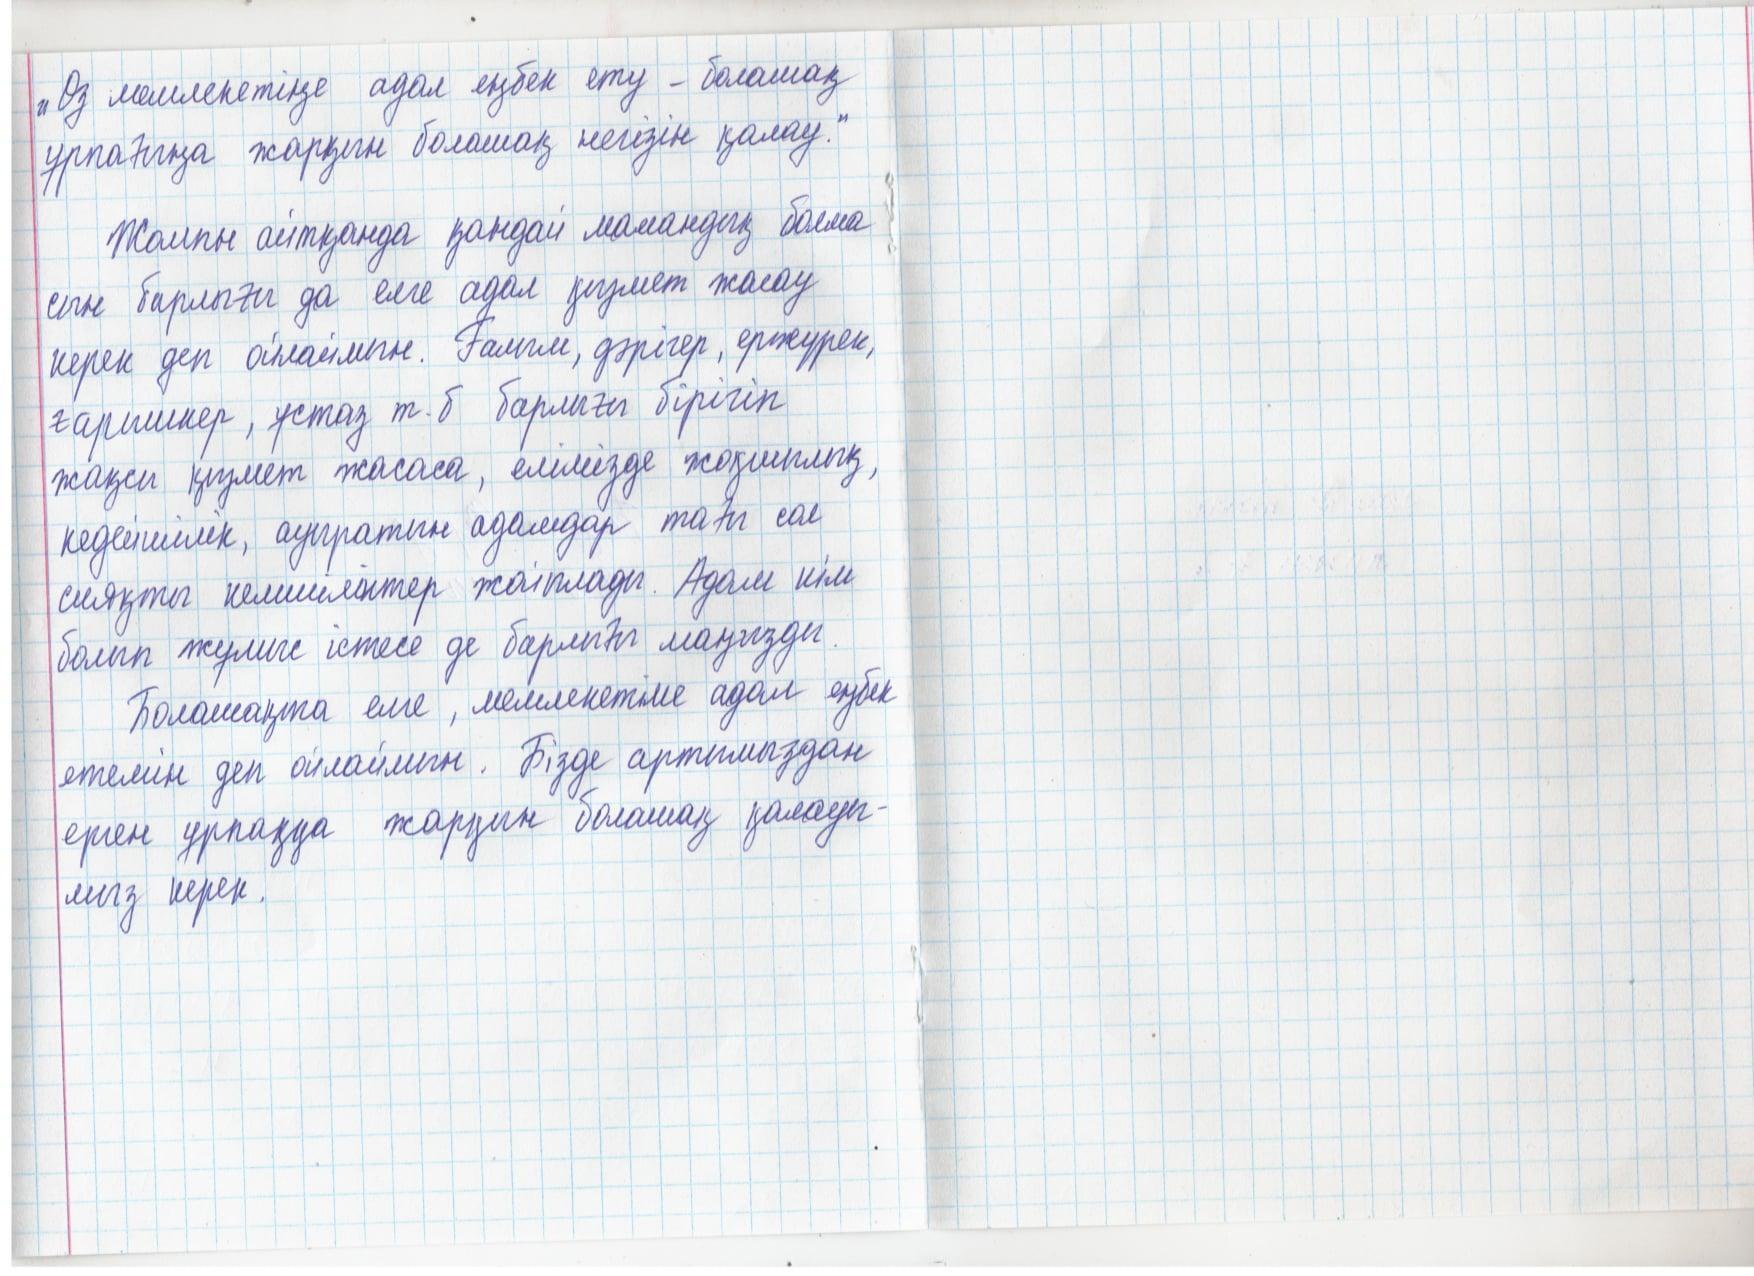 „Өз мемлекетіңе адал еңбек ету – болашақ
ұрпағыңа жарқын болашақ негізін қалау."
Жалпы айтқанда қандай мамандық болма
сын барлығы да елге адал қызмет жасау
керек деп ойлаймын. Ғалым, дәрігер, ержүрек,
ғарышкер, ұстаз т.б барлығы бірігіп
жақсы қызмет жасаса, елімізде жоқшылық,
кедейшілік, ауыратын адамдар тағы сол
сияқты кемшіліктер жойылады. Адам кім
болып жұмыс істесе де барлығы маңызды.
Болашақта елге, мемлекетіме адал еңбек
етемін деп ойлаймын. Бізде артымыздан
ерген ұрпаққа жарқын болашақ қалауы-
мыз керек.